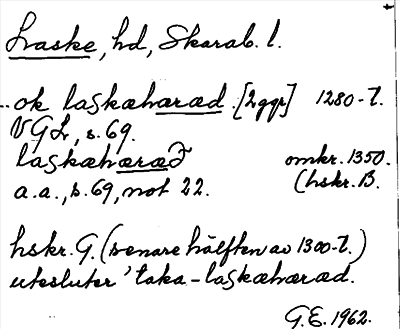 Laske, hd, Skarab. l.
..ok laskæhæræd. [2ggr] 1280-t.
VGL, s. 69.
laskæhæræð omkr. 1350.
a.a., s. 69, not 22. (hskr. B.
hskr. G. (senare hälften av 1300-t.)
utesluter 'taka-laskæhæræd.
G.E. 1962.